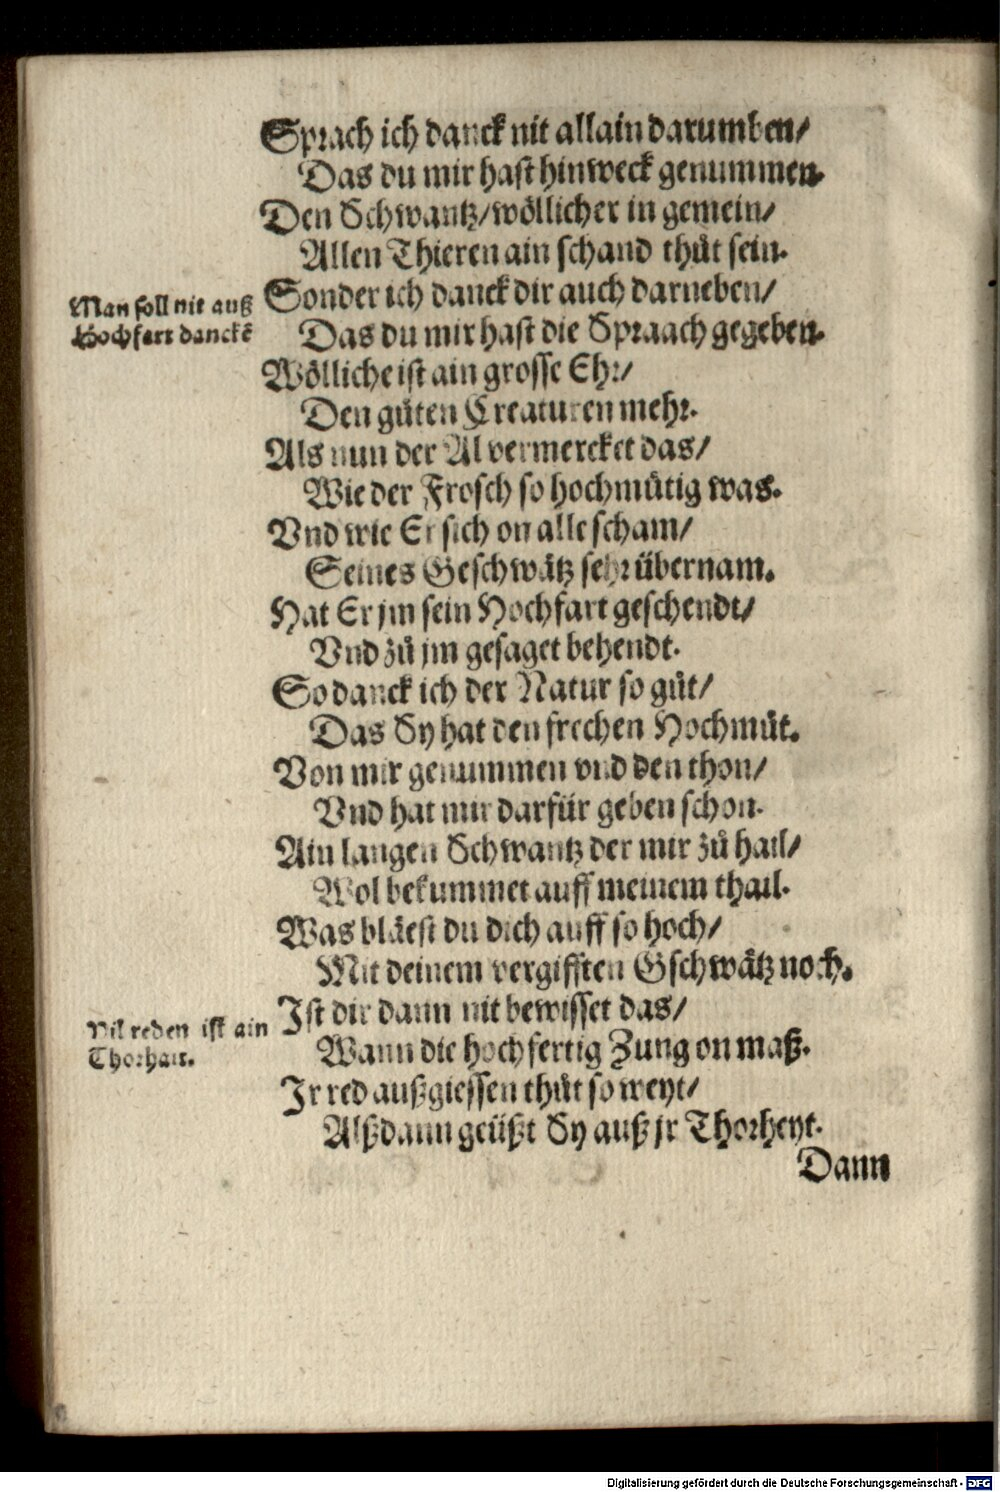 Sprach ich danck nit allain darumben/
Das du mir hast hinweck genummen.
Den Schwantz/wöllicher in gemein/
Allen Thieren ain schand thůt sein.
Man soll nit auß
Hochfart danckē
Sonder ich danck dir auch darneben/
Das du mir hast die Spraach gegeben.
Wölliche ist ain grosse Ehr/
Den gůten Creaturen mehr.
Als nun der Al vermercket das/
Wie der Frosch so hochmütig was.
Vnd wie Er sich on alle scham/
Seines Geschwätz sehr übernam.
Hat Er jm sein Hochfart geschendt/
Vnd zů jm gesaget behendt.
So danck ich der Natur so gůt/
Das Sy hat den frechen Hochmůt.
Von mir genummen vnd den thon/
Vnd hat mir darfür geben schon.
Ain langen Schwantz der mir zů hail/
Wol bekummet auff meinem thail.
Was bläest du dich auff so hoch/
Mit deinem vergifften Gschwätz noch.
Vil reden ist ain
Thorhait.
Ist dir dann nit bewisset das/
Wann die hochfertig Zung on maß.
Ir red außgiessen thůt so weyt/
Alßdann geüßt Sy auß jr Thorheyt.
Dann
Digitalisierung gefördert durch die Deutsche Forschungsgemeinschaft - DFG